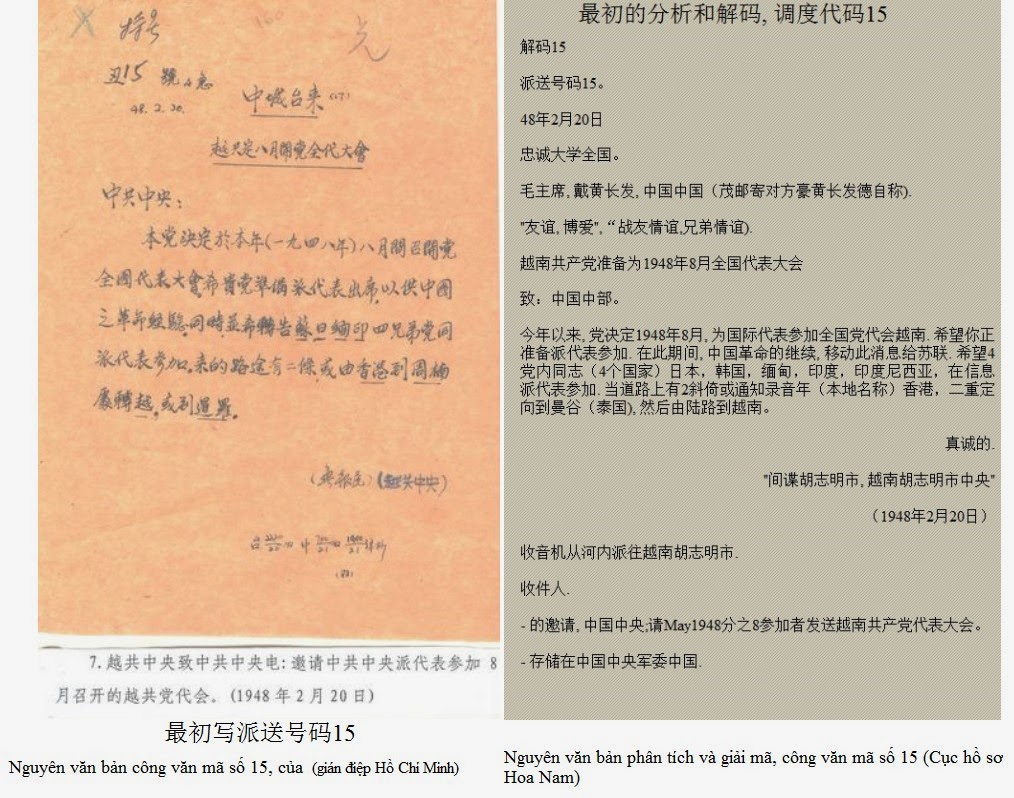 特号
丑15 號
48.2.20.
中城台来
越共定八月開党全代大會
中共中央：
本党決定於本年(一九四八年)八月間召開党
全國代表大會,希貴党準備派代表出席,以供中國
之革命經驗,同時並希轉告蘇日緬印四兄弟党同
派代表参加,来的路途有二條,或由香港到
轉越,或到暹羅。
(越共中央)
7.越共中央致中共中央电:邀请中共中央派代表参加 8
月召开的越共党代会。(1948 年 2 月 20 日)
最初写派送号码15
Nguyên văn bản công văn mã số 15, của (gián điệp Hồ Chí Minh)
最初的分析和解码, 调度代码15
解码15
派送号码15。
48年2月20日
忠诚大学全国。
毛主席, 戴黄长发, 中国中国（茂邮寄对方豪黄长发德自称).
"友谊, 博爱", “战友情谊,兄弟情谊).
越南共产党准备为1948年8月全国代表大会
致：中国中部。
今年以来, 党决定1948年8月, 为国际代表参加全国党代会越南. 希望你正
准备派代表参加. 在此期间, 中国革命的继续, 移动此消息给苏联. 希望4
党内同志（4个国家）日本，韩国，缅甸，印度，印度尼西亚，在信息
派代表参加. 当道路上有2斜倚或通知录音年（本地名称）香港，二重定
向到曼谷（泰国), 然后由陆路到越南。
真诚的.
"间谍胡志明市, 越南胡志明市中央"
（1948年2月20日）
收音机从河内派往越南胡志明市.
收件人.
- 的邀请, 中国中央;请May1948分之8参加者发送越南共产党代表大会。
- 存储在中国中央军委中国.
Nguyên văn bản phân tích và giải mã, công văn mã số 15 (Cục hồ sơ
Hoa Nam)